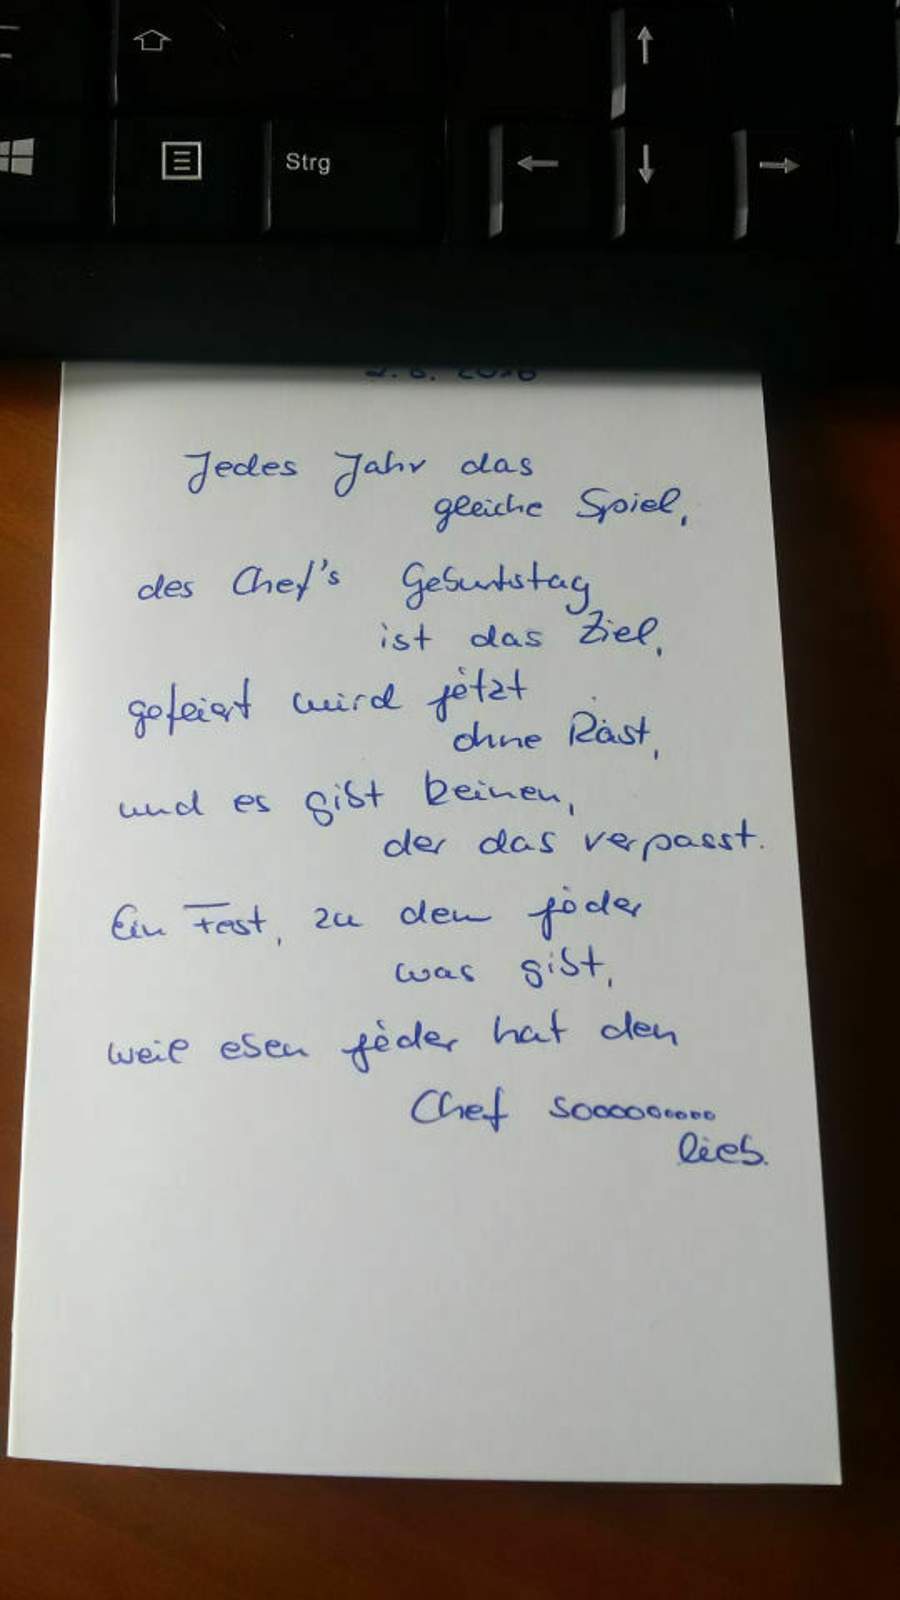 Strg
Jedes Jahr das
gleiche Spiel,
des Chef's Geburtstag
ist das Ziel,
gefeiert wird jetzt
ohne Rast,
und es gibt keinen,
der das verpasst.
Ein Fest, zu dem jeder
was gibt,
weil eben jeder hat den
Chef soooooooooo
lieb.